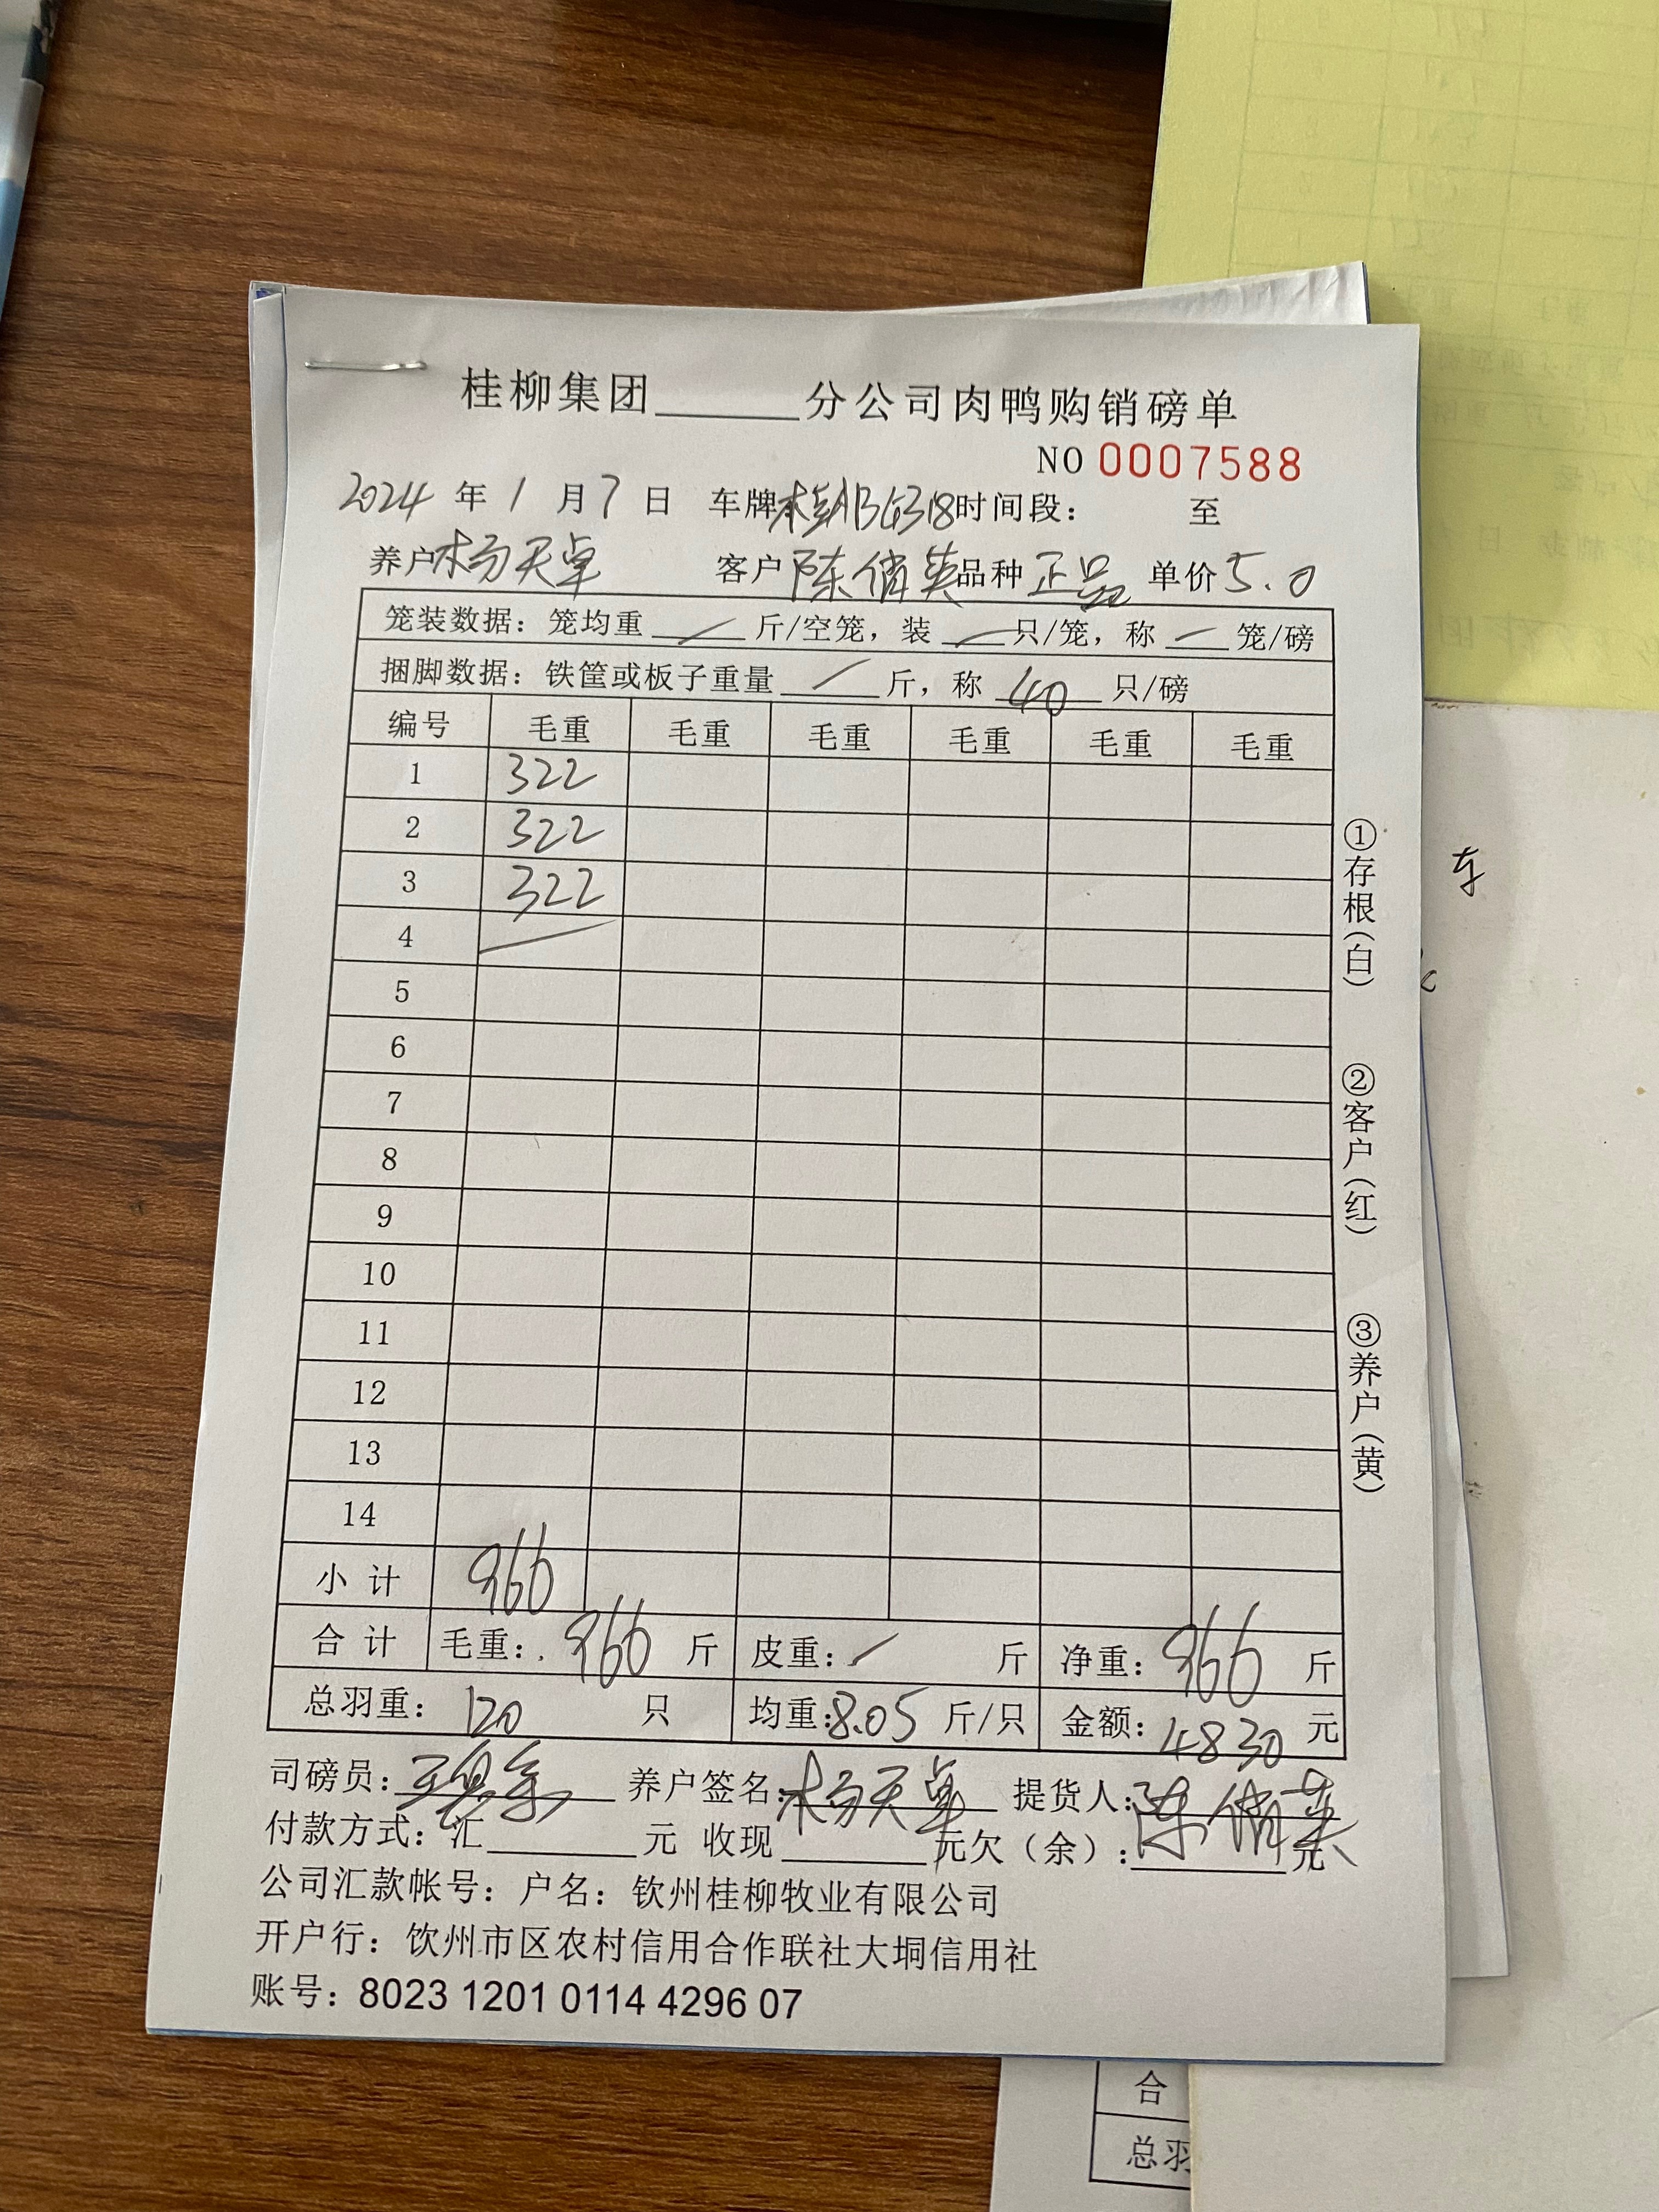 桂柳集团______分公司肉鸭购销磅单
NO 0007588
2024 年 1 月 7 日 车牌 时间段: 至
养户 杨天卓 客户 陈俏英 品种 正品 单价 5.0
笼装数据: 笼均重 / 斤/空笼, 装 / 只/笼, 称 / 笼/磅
捆脚数据: 铁筐或板子重量 / 斤, 称 40 只/磅
编号 毛重 毛重 毛重 毛重 毛重 毛重
1 322
2 322
3 322
4 /
5
6
7
8
9
10
11
12
13
14
小计 966
合计 毛重: 966 斤 皮重: / 斤 净重: 966 斤
总羽重: 120 只 均重: 8.05 斤/只 金额: 4830 元
司磅员: 养户签名: 杨天卓 提货人: 陈俏英
付款方式: 汇______元 收现______元欠(余):______元
公司汇款帐号: 户名: 钦州桂柳牧业有限公司
开户行: 钦州市区农村信用合作联社大垌信用社
账号: 8023 1201 0114 4296 07
①存根(白)
②客户(红)
③养户(黄)
车
合
总羽